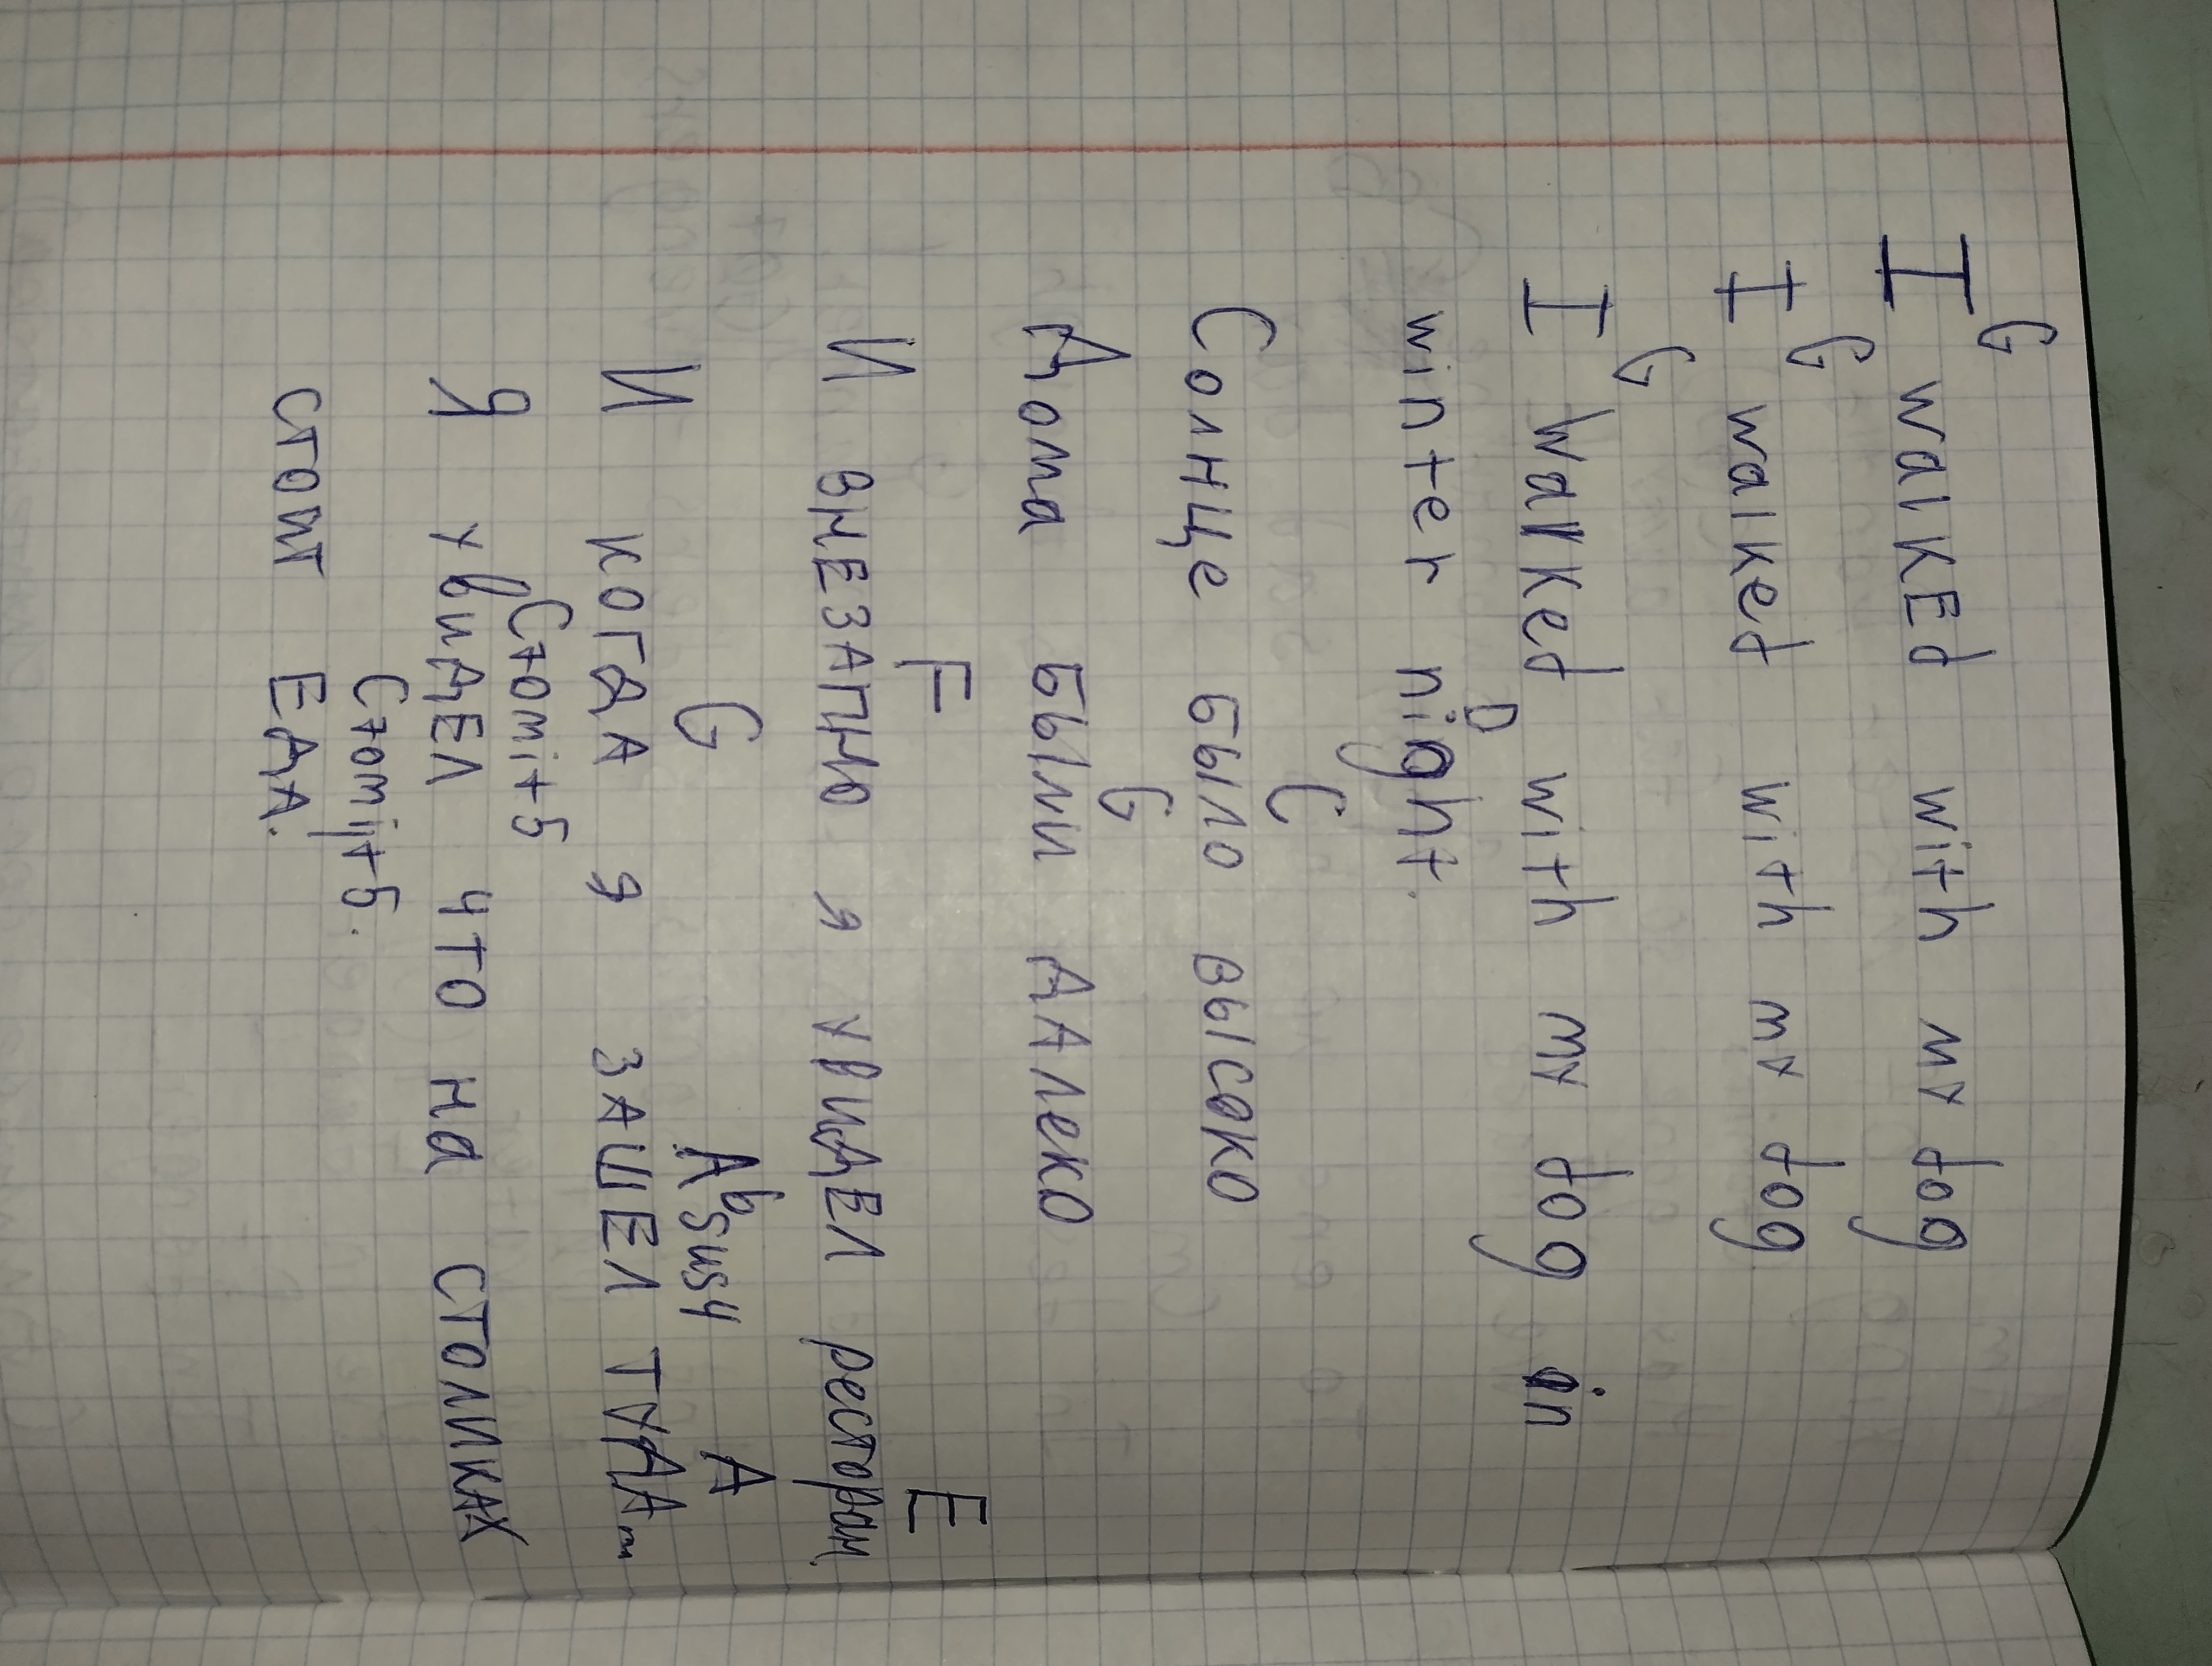 G
I walked with my dog
G
I walked with my dog
G
I walked with my dog in
D
winter night.
C
Солнце было высоко
G
Дома были далеко
F E
И внезапно я увидел ресторан,
G Absus4 A
И когда я зашел туда
Comit5
Я увидел что на столиках
Comit5.
стоит еда.